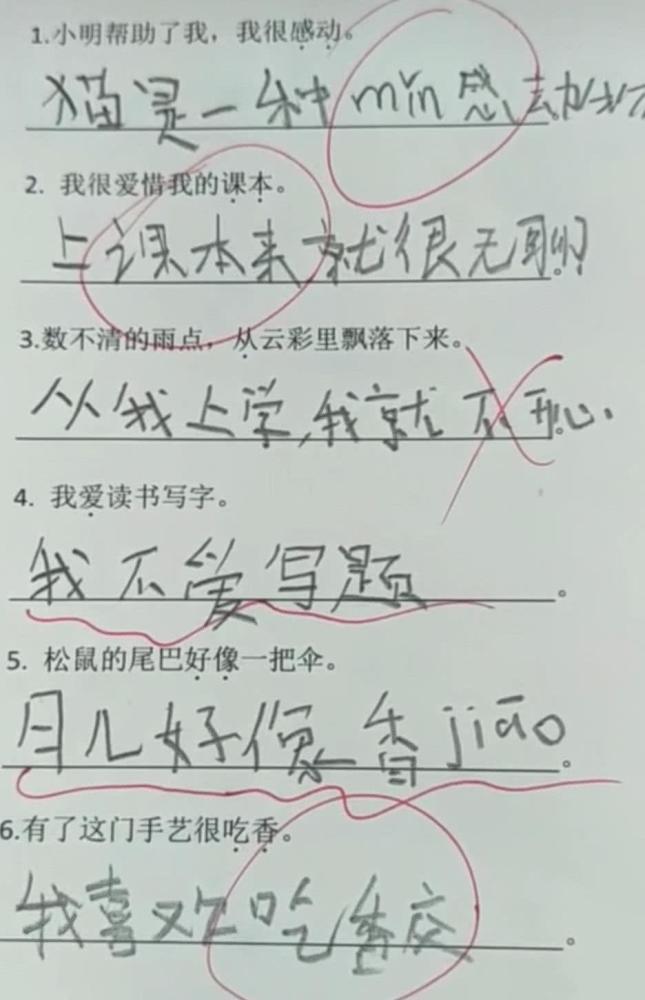 1.小明帮助了我，我很感动。
猫是一种mǐn感动物
2. 我很爱惜我的课本。
上课本来就很无聊
3.数不清的雨点，从云彩里飘落下来。
从我上学,我就不开心.
4. 我爱读书写字。
我不爱写题。
5. 松鼠的尾巴好像一把伞。
月儿好像香jiāo。
6.有了这门手艺很吃香。
我喜欢吃香交。